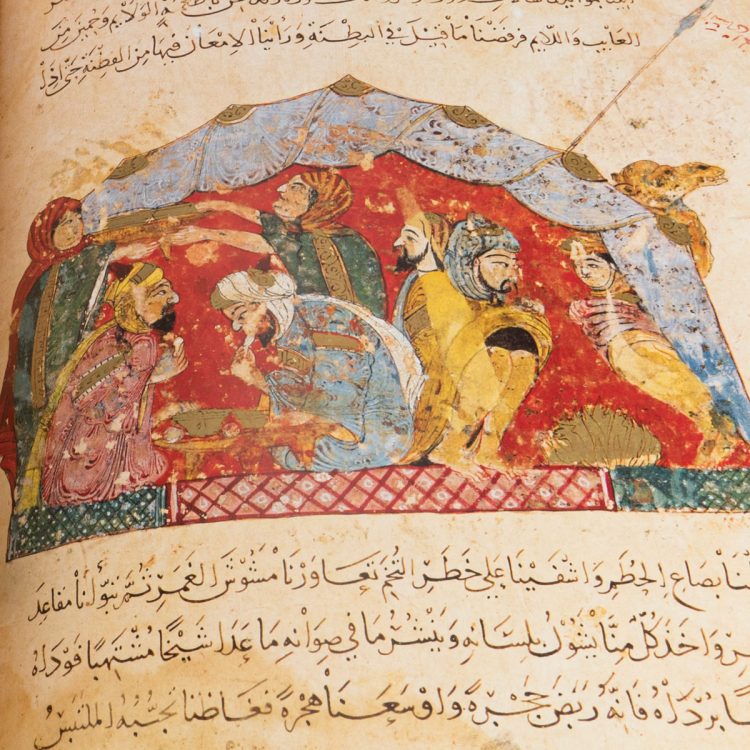 الولايم وحميين من
العايب واللايم فرفضنا ما قيل في البطنة وراينا الامعان فيها من الفطنة حتى اذا
بصاع الحطم واشفينا علي خطر التخم تعاورنا مشوش الغمر ثم تبوأنا مقاعد
واخذ كل منا يشول بلسانه وينشر ما في صوانه ما عدا شيخا مشتهبا فوداه
برداه فانه ربض حجرة واوسعنا هجرة فغاظنا تجنبه الملتبس